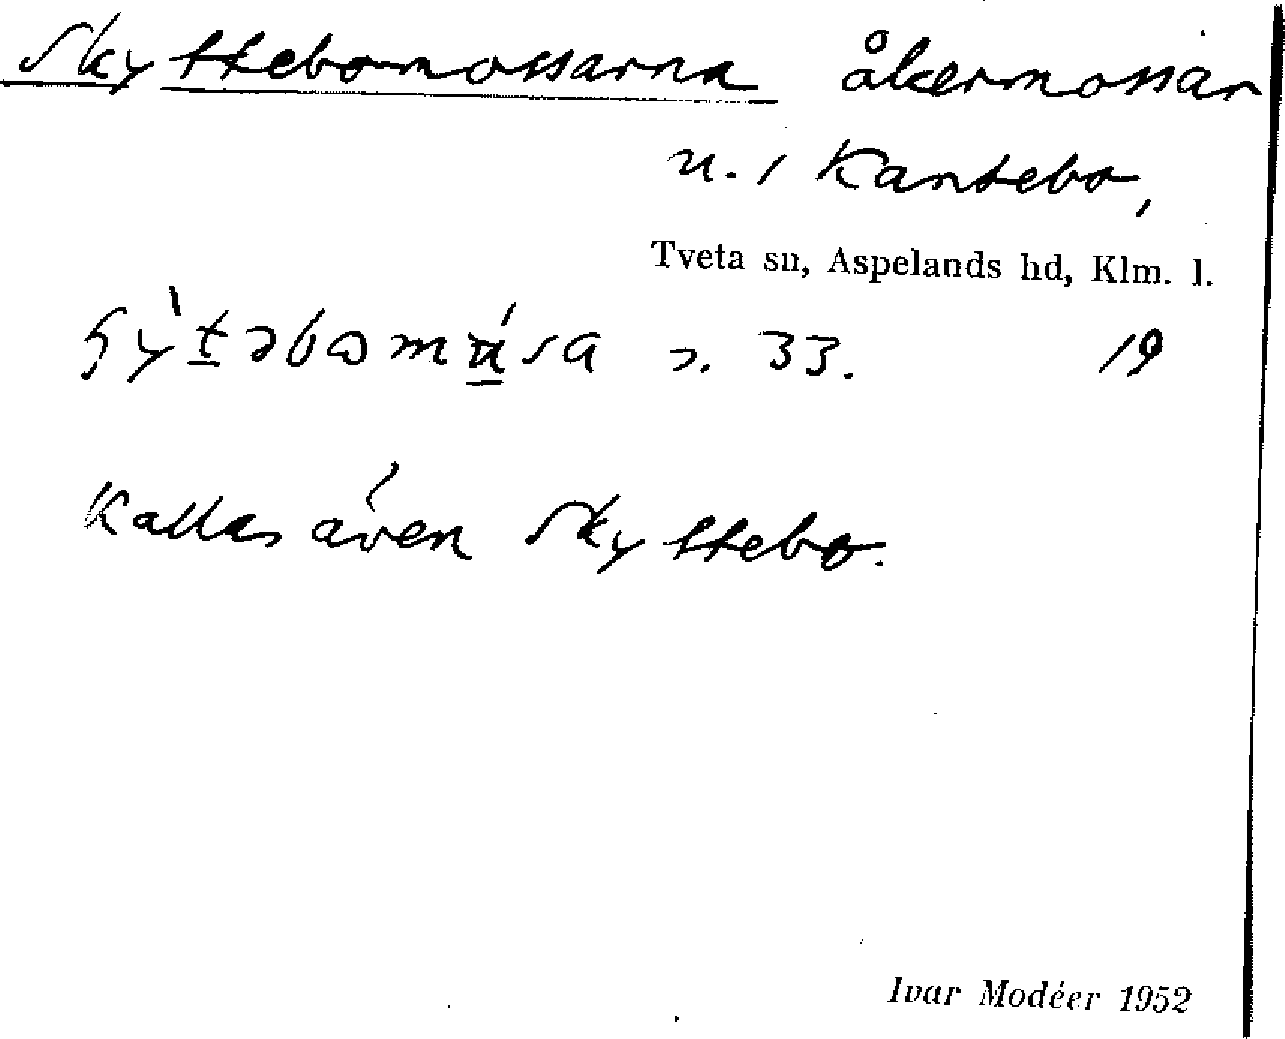 Skyttebomossarna åkermossar
n. i Kantebo,
Tveta sn, Aspelands hd, Klm. l.
33. 19
Kallas även Skyttebo.
Ivar Modéer 1952